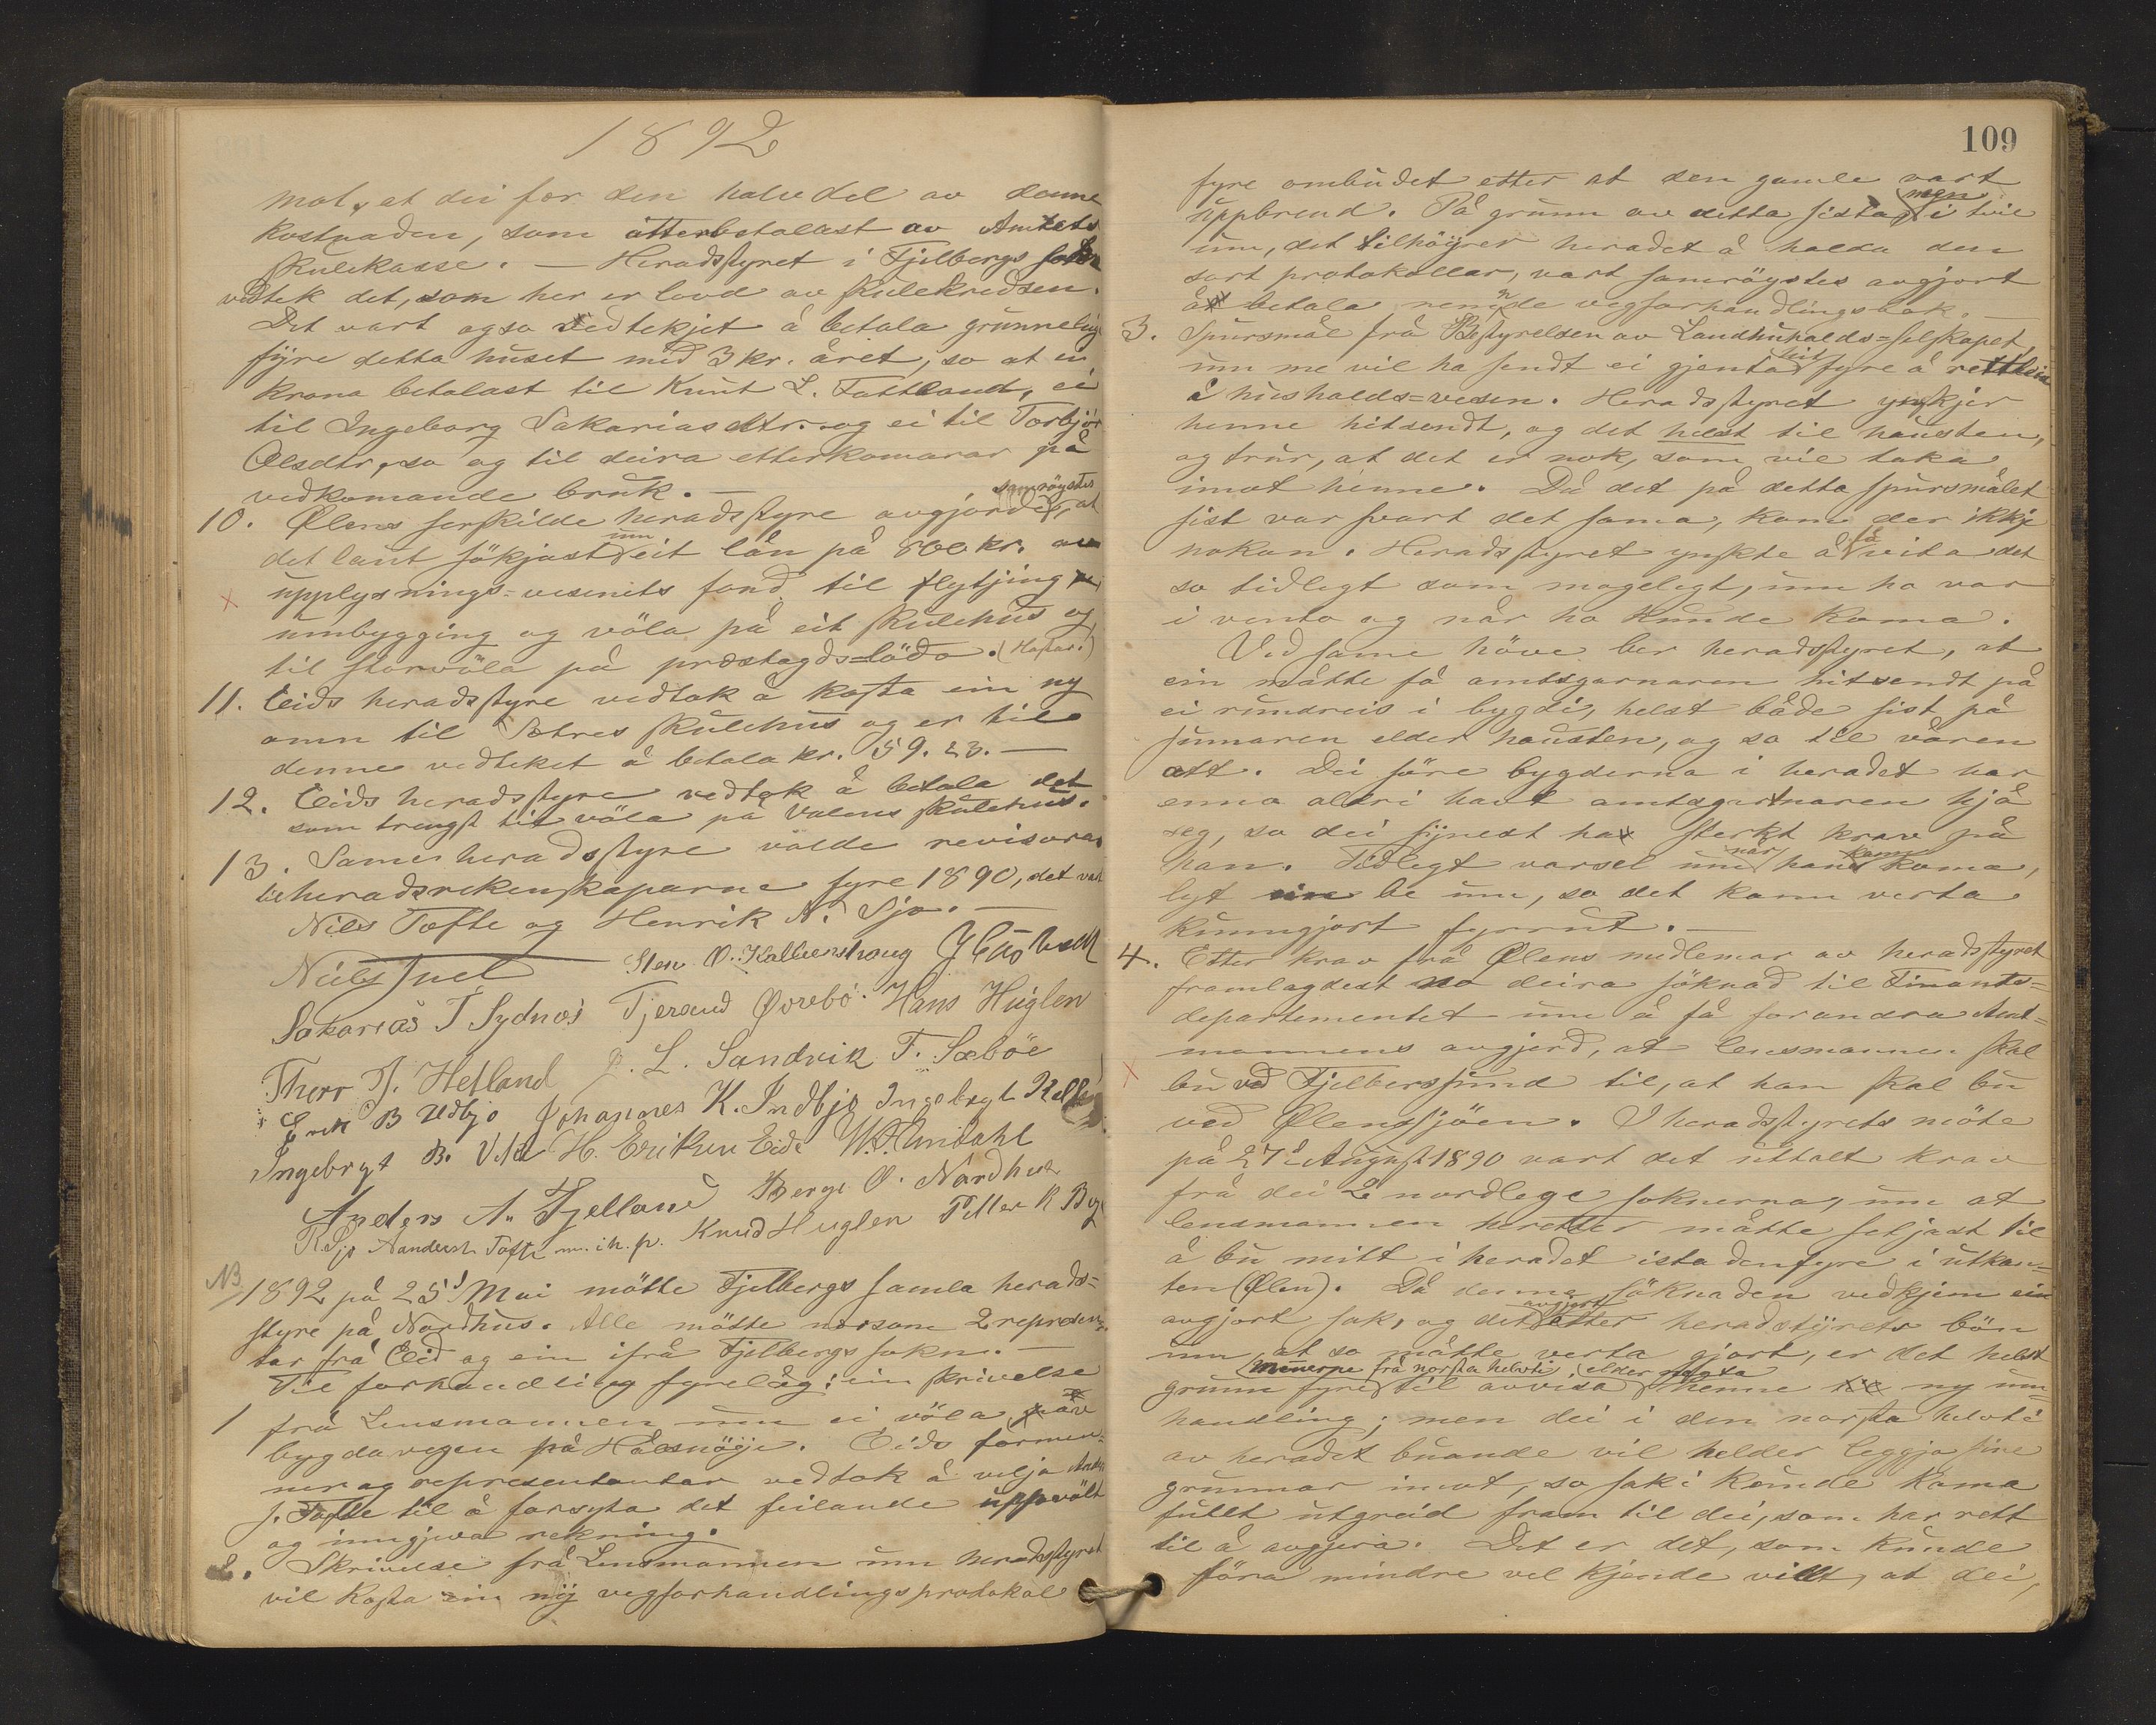 1892
mot, at dei fær den halve del av denne
kostnaden, som atterbetalast av Amtets
skulekasse. — Heradstyret i Fjelbergs sokn
vedtek det, som her er lovd av skulekredsen.
Det vart ogso vedtekjet å betala grunneleiga
fyre detta huset med 3 kr. året, so at ei
krona betalast til Knut L. Tattland, ei
til Ingeborg Sakariasdtr. og ei til Torbjör
Olsdtr, so og til deira etterkomarar på
vedkomande bruk. —
10. Ølens serskilde heradstyre avgjorde samröystes, at
det laut sökjast um eit lån på 800 kr. av
upplysnings-vesenets fond til flytjing
umbygging og völa på eit skulehus og
til storvöla på prestagds-löda. (Hastar!)
11. Eids heradstyre vedtok å kosta ein ny
omn til Sætres skulehus og er til
denne vedteket å betala kr. 59.23. —
12. Eids heradstyre vedtok å betala det
som trengst til völa på Valens skulehus.
13. Same heradstyre valde revisorar
til heradsrekenskaparne fyre 1890, det vart
Nils Tofte og Henrik N. Sjo. —
Niels Juel Sten O. Kallevenshaug
Sakarias T Sydnes Tjerand Øvrebö. Hans Huglen
Thorr T. Hetland J. L. Sandvik T. Sæböe
Erik B Udbjo Johannes K. Indbjo Ingebrgt
Ingebrgt B. H. Eriksen Eide
Anders A. Fjelland Berge O. Nordhus
R. Sjo Aandersh Tofte m. i h. p. Knud Huglen Petter R Bog
NB
1892 på 25d Mai mötte Fjelbergs samla herads-
styre på Nordhus. Alle mötte norsom 2 represen-
tar frå Eid og ein ifrå Fjelbergs sokn. —
Til forhandling fyrelåg: ein skrivelse
1 frå Lensmannen um ei völa på
bygdavegen på Halsnöyje. Eids formen-
ner og representantar vedtok å velja
J. Tofte til å forsyta det feilande uppvölt
og inngjeva rekning.
2. Skrivelse frå Lensmannen um heradstyret
vil kosta ein ny vegforhandlingsprotokol
109
fyre ombudet etter at den gamle vart
uppbrend. På grunn av detta sista, men i tvil
um, det tilhöyrer heradet å halda den
sort protokollar, vart samröystes avgjort
å betala nemnde vegforhandlingsbok. —
3. Spursmål frå Bestyrelsen av Landhuhalds-selskapet
um me vil ha sendt ei gjenta hit fyre å rettleia
i husholds-vesen. Heradstyret ynskjer
henne hitsendt, og det helst til hausten,
og trur, at det er nok, som vil taka
imot henne. Då det på detta spursmålet
sist var svart det sama, kom der ikkje
nokon. Heradstyret ynskte å få vita det
so tidlegt som mogelegt, um ho var
i vento og når ho kunde koma.
Ved same höve ber heradstyret, at
ein måtte få amtsgarnaren hitsendt på
ei rundreis i bygdi, helst både sist på
sumaren elder hausten, og so til våren
att. Dei söre bygderna i heradet har
enno aldri havt amtsgartnaren hjå
seg, so dei synest ha sterkt krav på
han. Tidlegt varsel um når han kann koma,
lyt ein be um, so det kann verta
kunngjort fyreut. —
4. Etter krav frå Ølens medlemar av heradstyret
framlagdest no deira söknad til Finants-
departementet um å få forandra Amt-
mannens avgjerd, at lensmannen skal
bu ved Fjelbersund til, at han skal bu
ved Ølenssjöen. I heradstyrets möte
på 27d August 1890 vart det uttalt krav
frå dei 2 nordlege soknerna, um at
lensmannen heretter måtte setjast til
å bu mitt i heradet istadenfyre i utkan-
ten (Ølen). Då denne söknaden vedkjem ein
avgjort sak, og det avgjort etter heradstyrets bön
um, at so måtte verta gjort, er det helst
grunn fyre menerne frå norsta helvti til avvisa elder negta henne ny um-
handling; men dei i den norsta helvti
av heradet buande vil helder leggja sine
grunnar imot, so saki kunde koma
fullt utgreid fram til dei, som har rett
til å avgjera. Det er det, som kunde
föra mindre vel kjende villt, at dei,